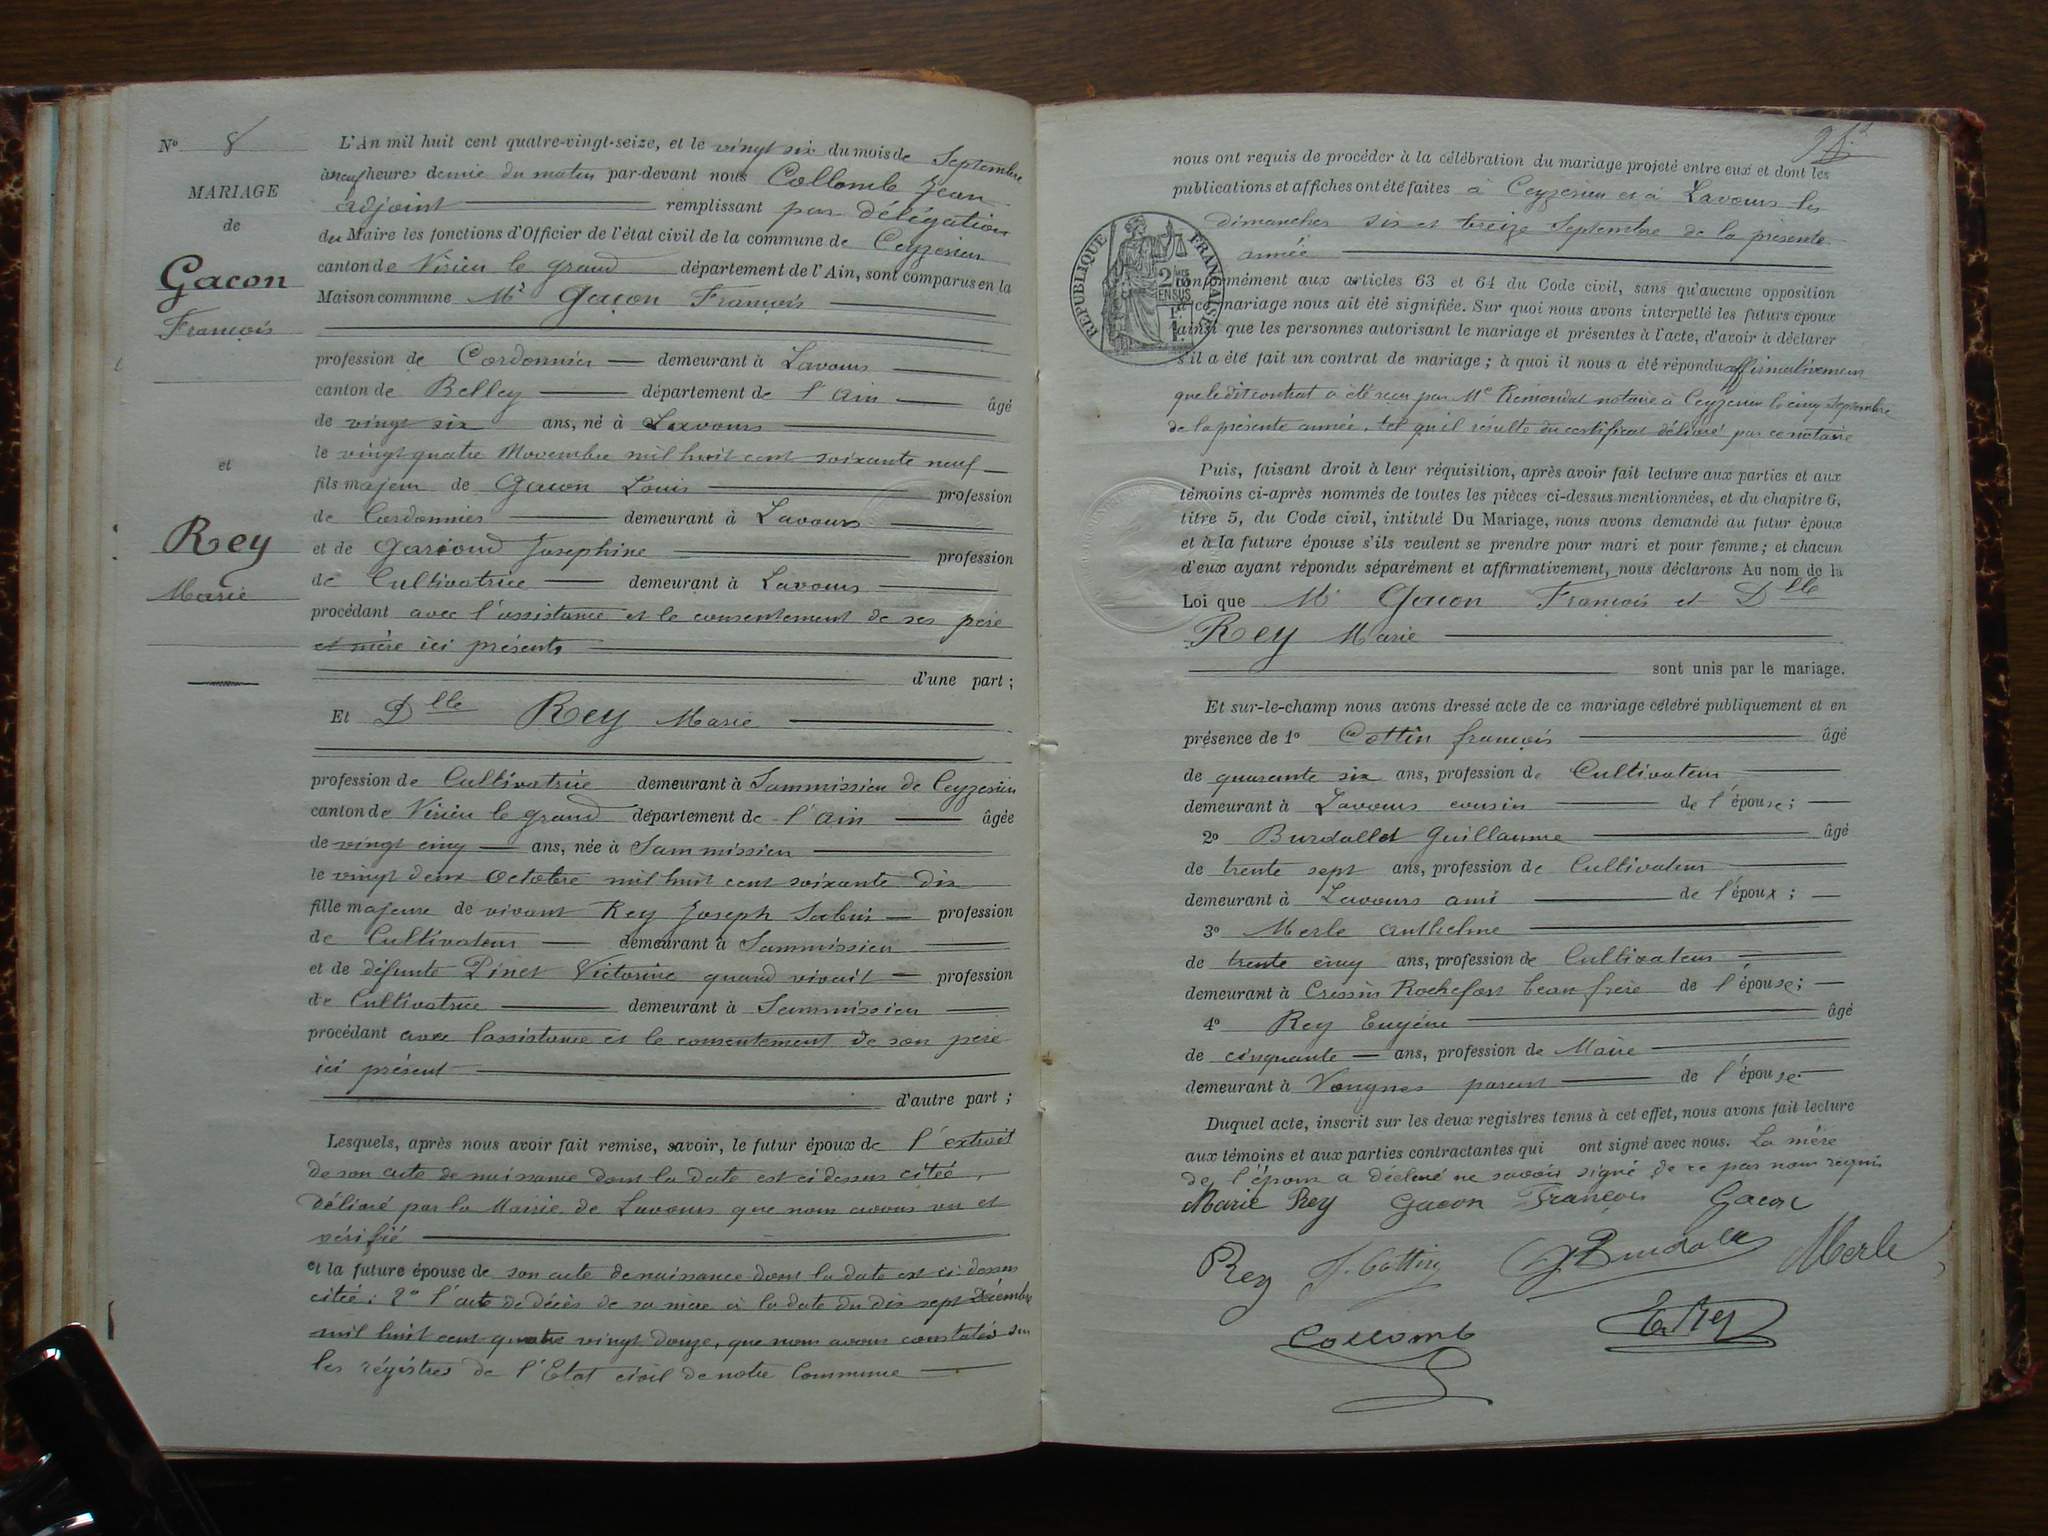 Nº 8
MARIAGE
de
Gacon
François
et
Rey
Marie
L'An mil huit cent quatre-vingt-seize, et le vingt six du mois de Septembre
à neuf heures demie du matin par-devant nous Collomb Jean
adjoint remplissant par délégation
du Maire les fonctions d'Officier de l'état civil de la commune de Ceyzerieu
canton de Virieu le grand département de l'Ain, sont comparus en la
Maison commune Mr Gacon François
profession de Cordonnier demeurant à Lavours
canton de Belley département de l'Ain âgé
de vingt six ans, né à Lavours
le vingt quatre Novembre mil huit cent soixante neuf
fils majeur de Gacon Louis profession
de Cordonnier demeurant à Lavours
et de Joséphine profession
de Cultivatrice demeurant à Lavours
procédant avec l'assistance et le consentement de ses père
et mère ici présents
d'une part ;
Et Dlle Rey Marie
profession de Cultivatrice demeurant à Sammissieu de Ceyzerieu
canton de Virieu le grand département de l'Ain âgée
de vingt cinq ans, née à Sammissieu
le vingt deux Octobre mil huit cent soixante dix
fille majeure de vivant Rey Joseph profession
de Cultivateur demeurant à Sammissieu
et de défunte Pinet Victorine quand vivait profession
de Cultivatrice demeurant à Sammissieu
procédant avec l'assistance et le consentement de son père
ici présent
d'autre part ;
Lesquels, après nous avoir fait remise, savoir, le futur époux de l'extrait
de son acte de naissance dont la date est ci dessus citée,
délivré par la Mairie de Lavours que nous avons vu et
vérifié
et la future épouse de son acte de naissance dont la date est ci dessus
citée ; 2º l'acte de décès de sa mère à la date du dix sept Décembre
mil huit cent quatre vingt douze, que nous avons constatés sur
les régistres de l'Etat civil de notre Commune
nous ont requis de procéder à la célébration du mariage projeté entre eux et dont les
publications et affiches ont été faites à Ceyzerieu et à Lavours les
dimanches six et treize Septembre de la présente
année
RÉPUBLIQUE FRANÇAISE
conformément aux articles 63 et 64 du Code civil, sans qu'aucune opposition
à ce mariage nous ait été signifiée. Sur quoi nous avons interpellé les futurs époux
ainsi que les personnes autorisant le mariage et présentes à l'acte, d'avoir à déclarer
s'il a été fait un contrat de mariage ; à quoi il nous a été répondu affirmativement
que le dit contrat a été reçu par Me Rémondat notaire à Ceyzerieu le cinq Septembre
de la présente année, tel qu'il résulte du certificat délivré par ce notaire
Puis, faisant droit à leur réquisition, après avoir fait lecture aux parties et aux
témoins ci-après nommés de toutes les pièces ci-dessus mentionnées, et du chapitre 6,
titre 5, du Code civil, intitulé Du Mariage, nous avons demandé au futur époux
et à la future épouse s'ils veulent se prendre pour mari et pour femme ; et chacun
d'eux ayant répondu séparément et affirmativement, nous déclarons Au nom de la
Loi que Mr Gacon François et Dlle
Rey Marie
sont unis par le mariage.
Et sur-le-champ nous avons dressé acte de ce mariage célébré publiquement et en
présence de 1º Cottin françois âgé
de quarante six ans, profession de Cultivateur
demeurant à Lavours cousin de l'épouse ;
2º Burdallet Guillaume âgé
de trente sept ans, profession de Cultivateur
demeurant à Lavours ami de l'époux ;
3º Merle Anthelme
de trente cinq ans, profession de Cultivateur
demeurant à Cressin Rochefort beau frère de l'épouse ;
4º Rey Eugéne âgé
de cinquante ans, profession de Maire
demeurant à Vongnes parent de l'épouse
Duquel acte, inscrit sur les deux registres tenus à cet effet, nous avons fait lecture
aux témoins et aux parties contractantes qui ont signé avec nous. La mère
de l'époux a déclaré ne savoir signé de ce par nous requis
Marie Rey Gacon François Gacon
Rey F. Cottin Merle
Collomb E. Rey